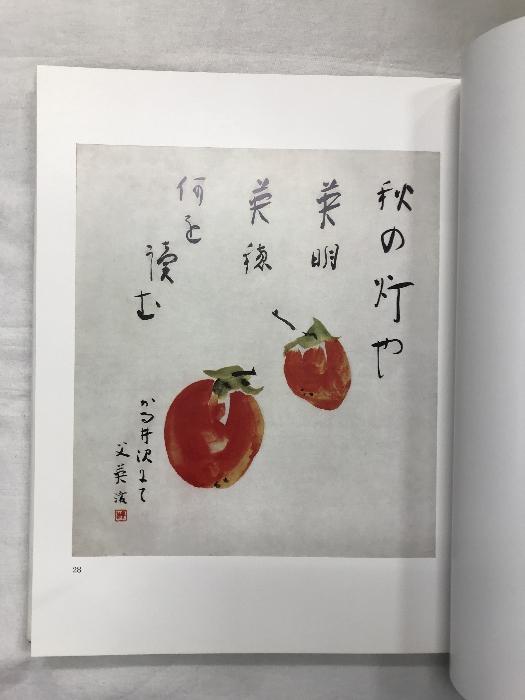 秋の灯や
英明
英穂
何を
讀む
かる井沢にて
父英
28